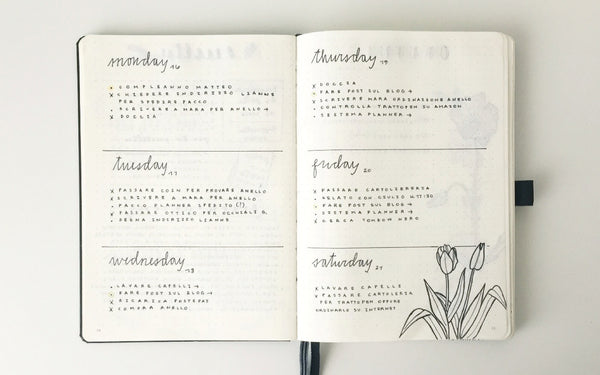 monday 16
• COMPLEANNO MATTEO
X CHIEDERE INDIRIZZO LIANNE
PER SPEDIRE PACCO
• SCRIVERE A MARA PER ANELLO →
X DOCCIA
tuesday
17
X PASSARE COIN PER PROVARE ANELLO
X SCRIVERE A MARA PER ANELLO
• PACCO PLANNER SPEDITO (!)
X PASSARE OTTICO PER OCCHIALE G.
• SEGNA INDIRIZZO LIANNE
wednesday
18
• LAVARE CAPELLI →
• FARE POST SUL BLOG →
X RICARICA POSTEPAY
X COMPRA ANELLO
thursday 19
X DOCCIA
• FARE POST SUL BLOG →
X SCRIVERE MARA ORDINAZIONE ANELLO
• CONTROLLA TRATTOPEN SU AMAZON
• SISTEMA PLANNER →
friday 20
X PASSARE CARTOLIBRERIA
• GELATO CON GIULIO H.17:30
• FARE POST SUL BLOG →
• SISTEMA PLANNER →
X CERCA TOMBOW NERO
saturday 21
X LAVARE CAPELLI
X PASSARE CARTOLERIA
PER TRATTOPEN OPPURE
ORDINARLO SU INTERNET